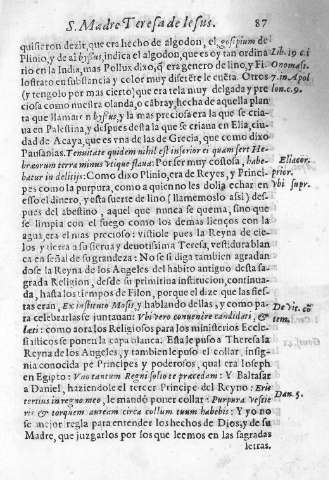 S. Madre Teresa de Iesus. 87
quisieron dezir, que era hecho de algodon, el gosipium de
Plinio, y de al byssus, indica el algodon, que es oy tan ordina
rio en la India, mas Pollux dixo, que era genero de lino, y Fi
lostrato en substancia y color muy discierne le cueta. Otros
(y tengolo por mas cierto) que era tela muy delgada y pre
ciosa como nuestra olanda, o cābray, hecha de aquella plan
ta que llamaron byssus, y la mas preciosa era la que se cria
ua en Palestina, y despues desta la que se criaua en Elia, ciu
dad de Acaya, que es vna de las de Grecia, que como dixo
Pausanias. Tenuitate quidem nihil est inferior ei quam fert He-
bræorum terra minus vtique flaua: Por ser muy costosa, habe-
batur in delitijs: Como dixo Plinio, era de Reyes, y Princi-
pes como la purpura, como a quien no les dolia echar en
esso el dinero, y esta suerte de lino (llamemoslo assi) des-
pues del abestino, aquel que nunca se quema, sino que
se limpia con el fuego como los demas lienços con la
agua, era el mas precioso: vistiole pues la Reyna de cie-
los y tierra a su sierua y deuotissima Teresa, vestidura blan
ca en señal de su grandeza: No se si diga tambien agradan
dose la Reyna de los Angeles del habito antiguo desta sa-
grada Religion, desde su primitiua institucion, continua-
da, hasta los tiempos de Filon, porque el dize que las fies-
tas eran, Ex instituto Mosis, y hablando dellas, y como pa-
ra celebrarlas se juntauan: Vbi vero conuenêre candidati, &
læti: como aora los Religiosos para los ministerios Eccle-
siasticos se ponen la capa blanca. Esta le puso a Theresa la
Reyna de los Angeles, y tambien le puso el collar, insig-
nia conocida de Principes y poderosos, qual era Ioseph
en Egipto: Vno tantum Regni solio te præcedam: Y Baltasar
a Daniel, haziendole el tercer Principe del Reyno: Eris
tertius in regno meo, le mandó poner collar: Purpura vestie
ris & torquem auream circa collum tuum habebis: Y yo no
se mejor regla para entender los hechos de Dios, y de su
Madre, que juzgarlos por los que leemos en las sagradas
letras.
Lib. 19. c. 1
Onomast.
7. in Apol
lon. c. 9.
Eliacor.
prior.
Vbi supr.
De vit. cō
tem.
Dan. 5.